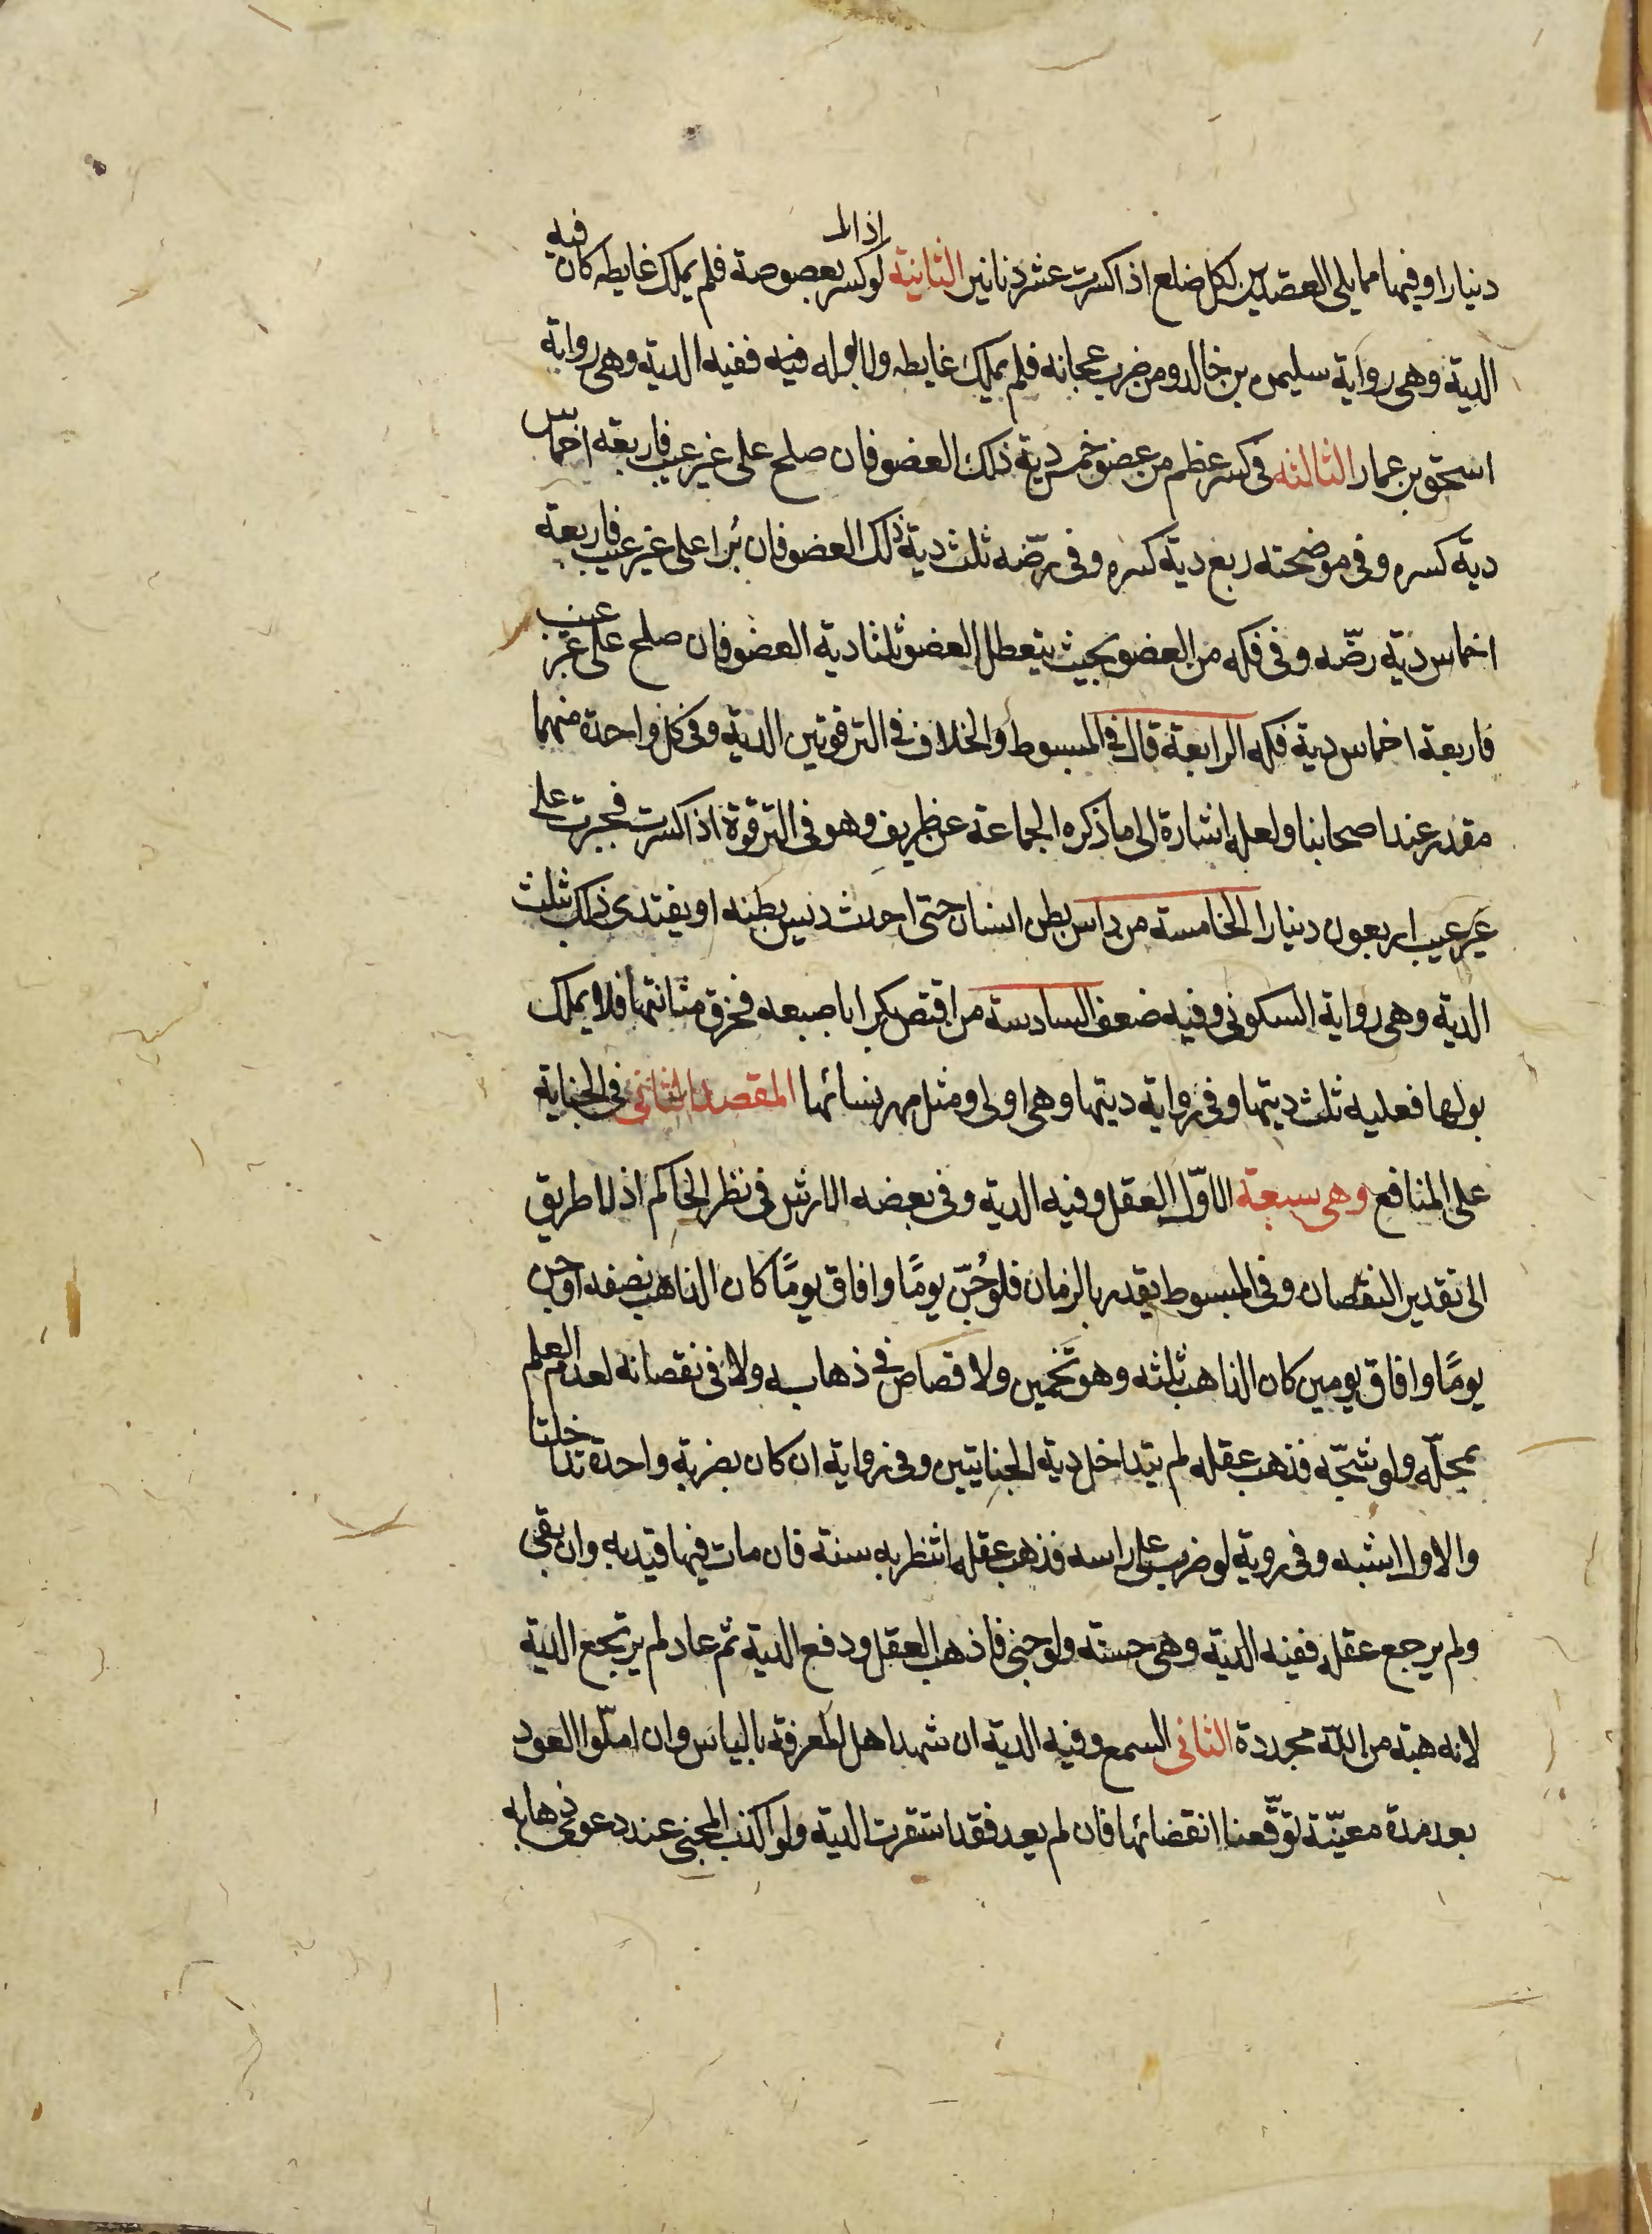 اذا لم
دينارا وفيما مما يلي العضدين لكل ضلع اذا كسرت عشر دنانير الثانية لو كسر بعصوصة فلم يملك غايطه كان فيه
الدية وهي رواية سليمن بن خالد ومن ضرب عجانه فلم يملك غايطه ولا بوله فيه ففيه الدية وهي رواية
اسحق بن عمار الثالثة في كسر عظم من عضو خمس دية ذلك العضو فان صلح على غير عيب فاربعة اخماس
دية كسره وفي موضحته ربع دية كسره وفي رضّه ثلث دية ذلك العضو فان برا على غير عيب فاربعة
اخماس دية رضّه وفي فكه من العضو بحيث يتعطل العضو ثلثا دية العضو فان صلح على غير عيب
فاربعة اخماس دية فكه الرابعة قال في المبسوط والخلاف في الترقوتين الدية وفي كل واحدة منهما
مقدر عند اصحابنا ولعله اشارة الى ما ذكره الجماعة عن ظريف وهو في الترقوة اذا كسرت فجبرت على
غير عيب اربعون دينارا الخامسة من داس بطن انسان حتى احدث ديس بطنه او يفتدى ذلك بثلث
الدية وهي رواية السكوني وفيه ضعف السادسة من اقتض بكرا باصبعه فخرق مثانتها فلا يملك
بولها فعليه ثلث ديتها وفي رواية ديتها وهي اولى ومثل مهر نسائها المقصد الثاني في الجناية
على المنافع وهي سبعة الاوّل العقل وفيه الدية وفي بعضه الارش في نظر الحاكم اذ لا طريق
الى تقدير النقصان وفي المبسوط يقدر بالزمان فلو جُنّ يومًا وافاق يومًا كان الذاهب نصفه او جن
يومًا وافاق يومين كان الذاهب ثلثه وهو تخمين ولا قصاص في ذهابه ولا في نقصانه لعدم العلم
بمحلّه ولو شجّه فذهب عقله لم يتداخل دية الجنايتين وفي رواية ان كان بضربة واحدة تداخلتا
والاول اشبه وفي روية لو ضرب على راسه فذهب عقله انتظر به سنة فان مات فيها قيد به وان بقي
ولم يرجع عقله ففيه الدية وهي حسنة ولو جنى فاذهب العقل ودفع الدية ثم عاد لم يرتجع الدية
لانه هبة من الله مجددة الثاني السمع وفيه الدية ان شهد اهل المعرفة بالياس وان امّلوا العود
بعد مدة معيّنة توقّعنا انقضائها فان لم يعد فقد استقرت الدية ولو اكذب المجني عند دعوى ذهابه